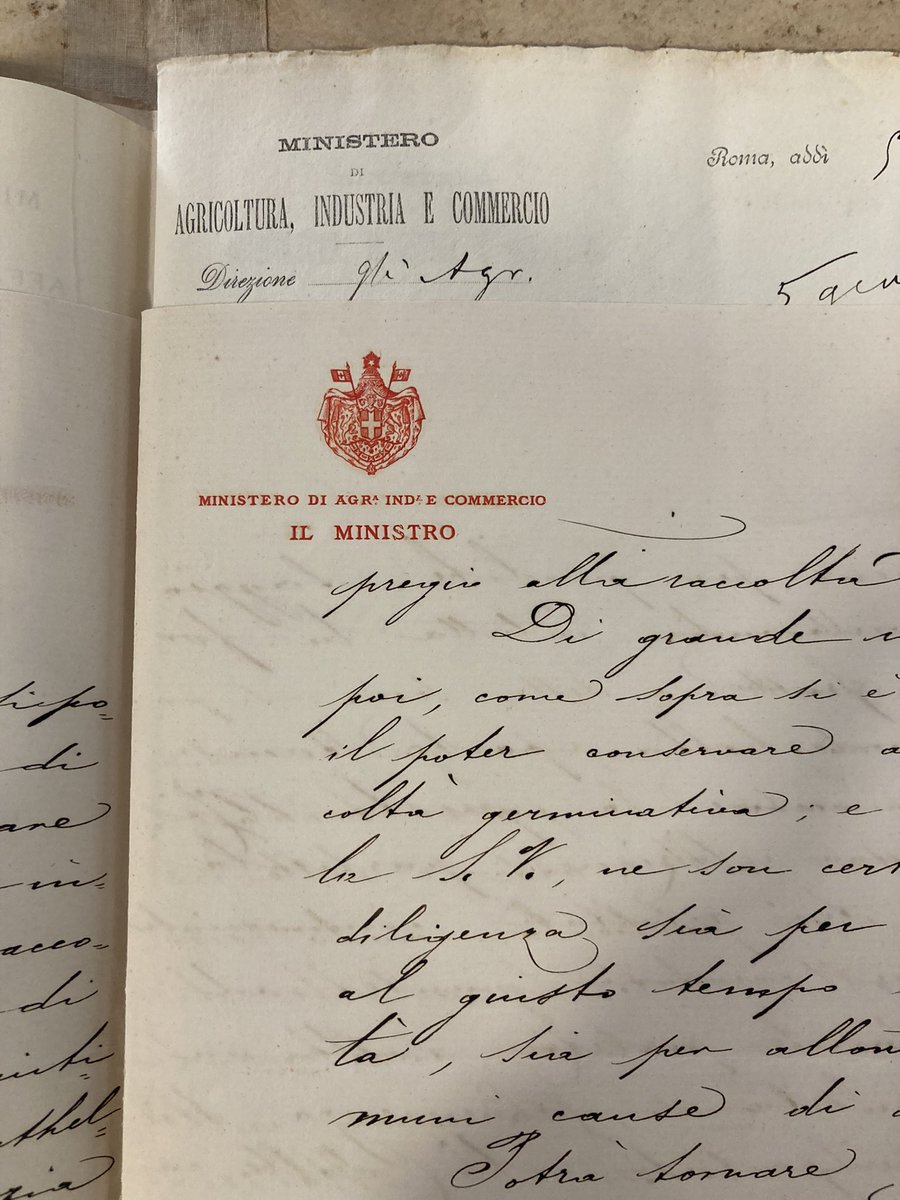 MINISTERO
DI
AGRICOLTURA, INDUSTRIA E COMMERCIO
Direzione Agr.
Roma, addì 5
5
MINISTERO DI AGR.ᴬ IND.ᴬ E COMMERCIO
IL MINISTRO
pregio alla raccolta
Di grande
poi, come sopra si è
il poter conservare a
coltà germinativa; e
la S. V., ne son cer
diligenza sia per
al giusto tempo
tà, sia per allon
muni cause di
Potrà tornare
di
are
in-
acco-
di
thel-
zia